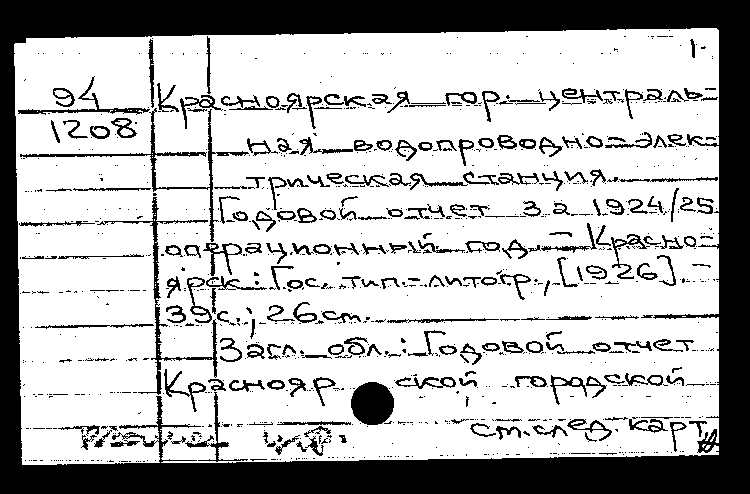 1.
94
1208
Красноярская гор. централь-
ная водопроводно-элек-
трическая станция.
Годовой отчет за 1924/25
операционный год. — Красно-
ярск: Гос. тип.-литогр., [1926]. —
39с.; 26см.
Загл. обл.: Годовой отчет
Красноярской городской
см.след. карт.